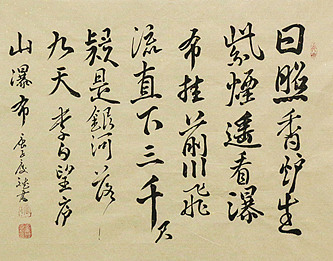 日照香炉生
紫煙遥看瀑
布挂前川飛
流直下三千尺
疑是銀河落
九天 李白望庐
山瀑布 庚子夏 书